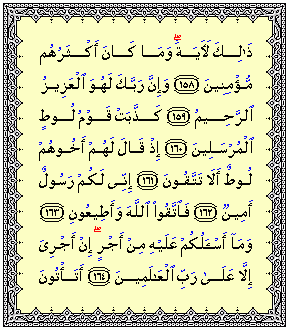 ذَٰلِكَ لَآيَةً ۖ وَمَا كَانَ أَكْثَرُهُم
مُّؤْمِنِينَ ﴿١٥٨﴾ وَإِنَّ رَبَّكَ لَهُوَ ٱلْعَزِيزُ
ٱلرَّحِيمُ ﴿١٥٩﴾ كَذَّبَتْ قَوْمُ لُوطٍ
ٱلْمُرْسَلِينَ ﴿١٦٠﴾ إِذْ قَالَ لَهُمْ أَخُوهُمْ
لُوطٌ أَلَا تَتَّقُونَ ﴿١٦١﴾ إِنِّى لَكُمْ رَسُولٌ
أَمِينٌ ﴿١٦٢﴾ فَٱتَّقُوا۟ ٱللَّهَ وَأَطِيعُونِ ﴿١٦٣﴾
وَمَآ أَسْـَٔلُكُمْ عَلَيْهِ مِنْ أَجْرٍ ۖ إِنْ أَجْرِىَ
إِلَّا عَلَىٰ رَبِّ ٱلْعَـٰلَمِينَ ﴿١٦٤﴾ أَتَأْتُونَ